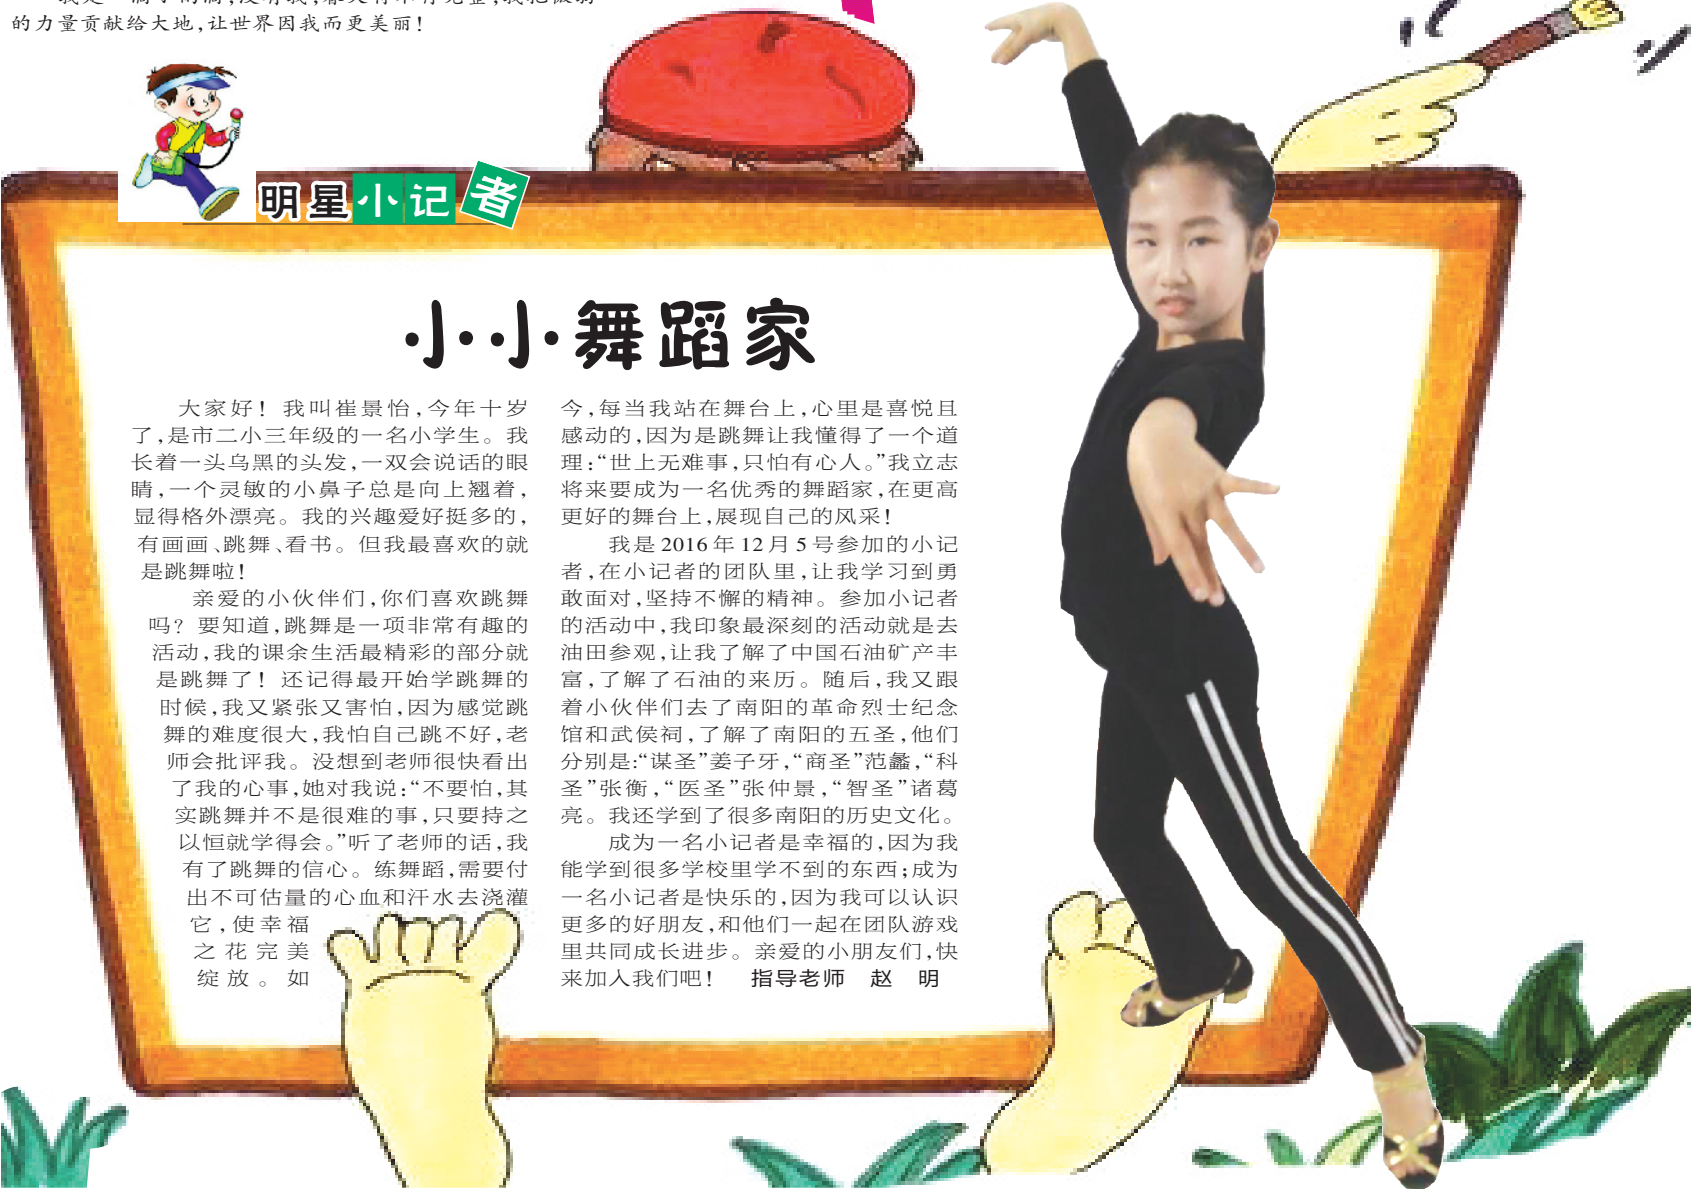 的力量贡献给大地,让世界因我而更美丽!
明星小记者
小小舞蹈家
大家好! 我叫崔景怡,今年十岁
了,是市二小三年级的一名小学生。我
长着一头乌黑的头发,一双会说话的眼
睛,一个灵敏的小鼻子总是向上翘着,
显得格外漂亮。我的兴趣爱好挺多的,
有画画、跳舞、看书。但我最喜欢的就
是跳舞啦!
亲爱的小伙伴们,你们喜欢跳舞
吗? 要知道,跳舞是一项非常有趣的
活动,我的课余生活最精彩的部分就
是跳舞了! 还记得最开始学跳舞的
时候,我又紧张又害怕,因为感觉跳
舞的难度很大,我怕自己跳不好,老
师会批评我。没想到老师很快看出
了我的心事,她对我说:“不要怕,其
实跳舞并不是很难的事,只要持之
以恒就学得会。”听了老师的话,我
有了跳舞的信心。练舞蹈,需要付
出不可估量的心血和汗水去浇灌
它,使幸福
之花完美
绽放。如
今,每当我站在舞台上,心里是喜悦且
感动的,因为是跳舞让我懂得了一个道
理:“世上无难事,只怕有心人。”我立志
将来要成为一名优秀的舞蹈家,在更高
更好的舞台上,展现自己的风采!
我是 2016 年 12 月 5 号参加的小记
者,在小记者的团队里,让我学习到勇
敢面对,坚持不懈的精神。参加小记者
的活动中,我印象最深刻的活动就是去
油田参观,让我了解了中国石油矿产丰
富,了解了石油的来历。随后,我又跟
着小伙伴们去了南阳的革命烈士纪念
馆和武侯祠,了解了南阳的五圣,他们
分别是:“谋圣”姜子牙,“商圣”范蠡,“科
圣”张衡,“医圣”张仲景,“智圣”诸葛
亮。我还学到了很多南阳的历史文化。
成为一名小记者是幸福的,因为我
能学到很多学校里学不到的东西;成为
一名小记者是快乐的,因为我可以认识
更多的好朋友,和他们一起在团队游戏
里共同成长进步。亲爱的小朋友们,快
来加入我们吧! 指导老师 赵 明